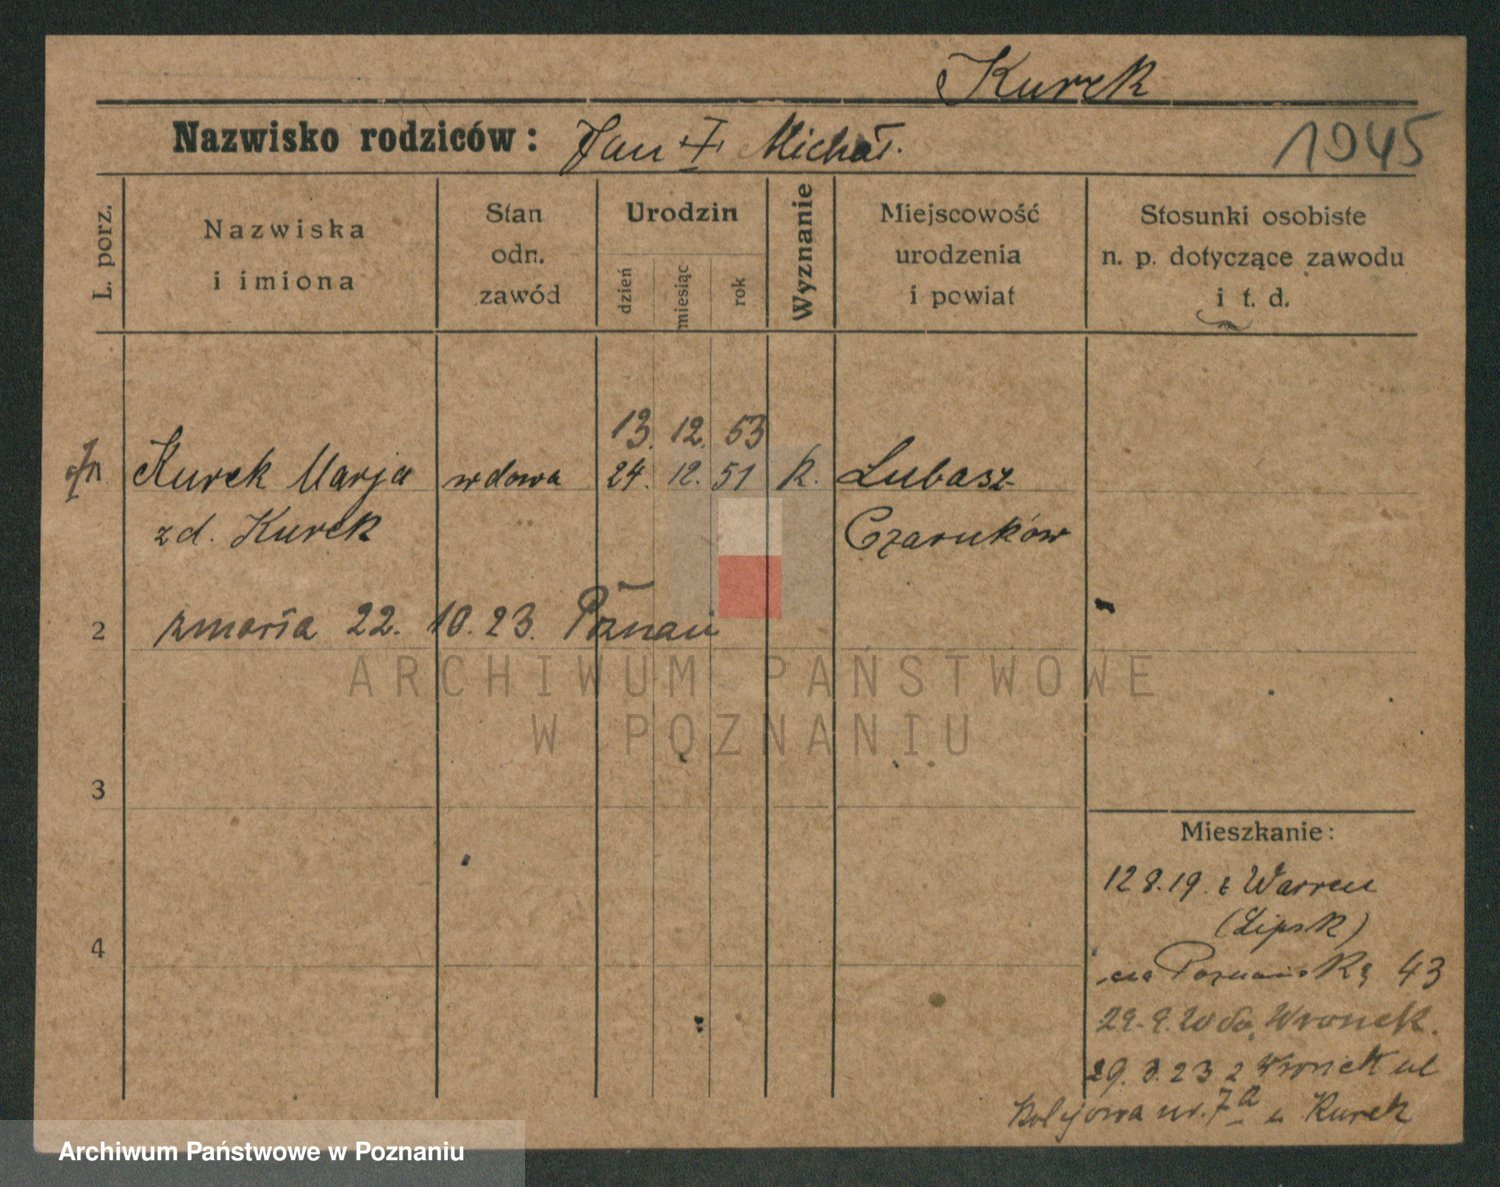 Kurek
Nazwisko rodziców: Jan I Michał.
1945
L. porz.
Nazwiska
i imiona
Stan
odn.
zawód
Urodzin
dzień
miesiąc
rok
Wyznanie
Miejscowość
urodzenia
i powiat
Stosunki osobiste
n. p. dotyczące zawodu
i t. d.
13. 12. 53
Kurek Marja wdowa 24. 12. 51 k. Lubasz
zd. Kurek Czarnków
2 zmarła 22. 10. 23. Poznań
ARCHIWUM PAŃSTWOWE
W POZNANIU
3
Mieszkanie:
12 8. 19. z Warren
(Lipsk)
4
na Poznańską 43
29. 9. 20 do Wronek.
29. 3. 23 z Wronek ul
Kolejowa nr. 7a u Kurek
Archiwum Państwowe w Poznaniu